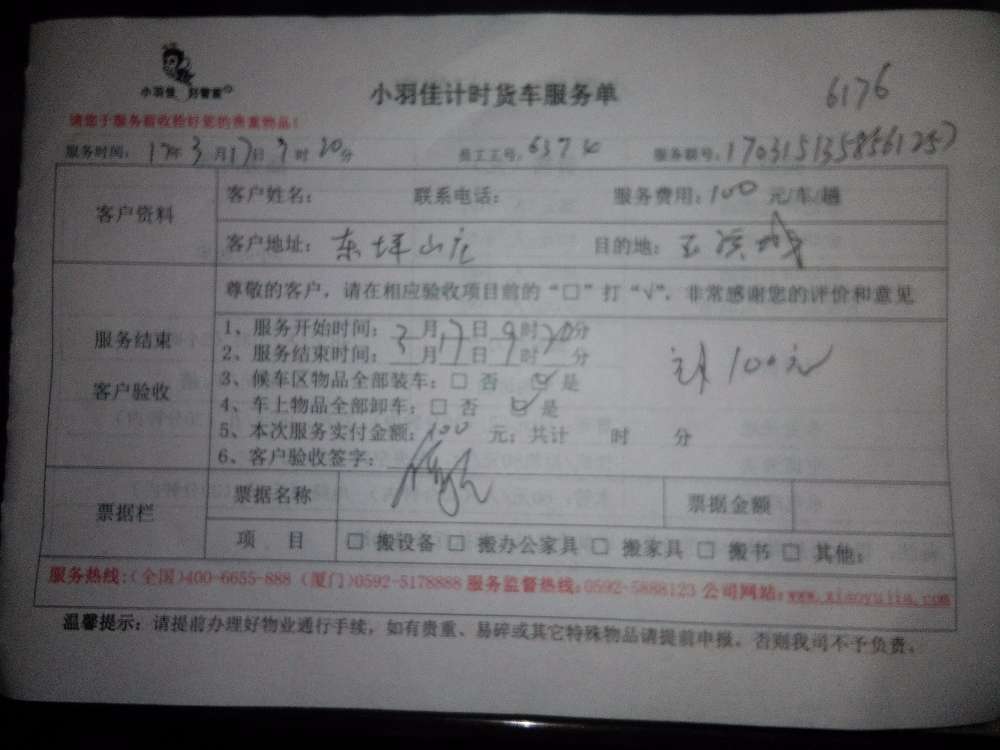 小羽佳 好管家
小羽佳计时货车服务单
6176
请您于服务前收捡好您的贵重物品!
服务时间: 17年3月17日9时20分 员工工号: 6374 服务联号: 1703151358561257
客户资料
客户姓名: 联系电话: 服务费用: 100元/车/趟
客户地址: 东坪山庄 目的地:
服务结束
客户验收
尊敬的客户,请在相应验收项目前的“□”打“√”,非常感谢您的评价和意见
1、服务开始时间: 3月17日9时20分
2、服务结束时间: 3月17日9时 分
3、候车区物品全部装车: □ 否 ☑ 是
4、车上物品全部卸车: □ 否 ☑ 是
100元
5、本次服务实付金额: 100元; 共计 时 分
6、客户验收签字:
票据栏
票据名称 票据金额
项 目 □ 搬设备 □ 搬办公家具 □ 搬家具 □ 搬书 □ 其他:
服务热线:(全国)400-6655-888 (厦门)0592-5178888 服务监督热线:0592-5888123 公司网站:www.xiaoyujia.com
温馨提示: 请提前办理好物业通行手续,如有贵重、易碎或其它特殊物品请提前申报。否则我司不予负责。